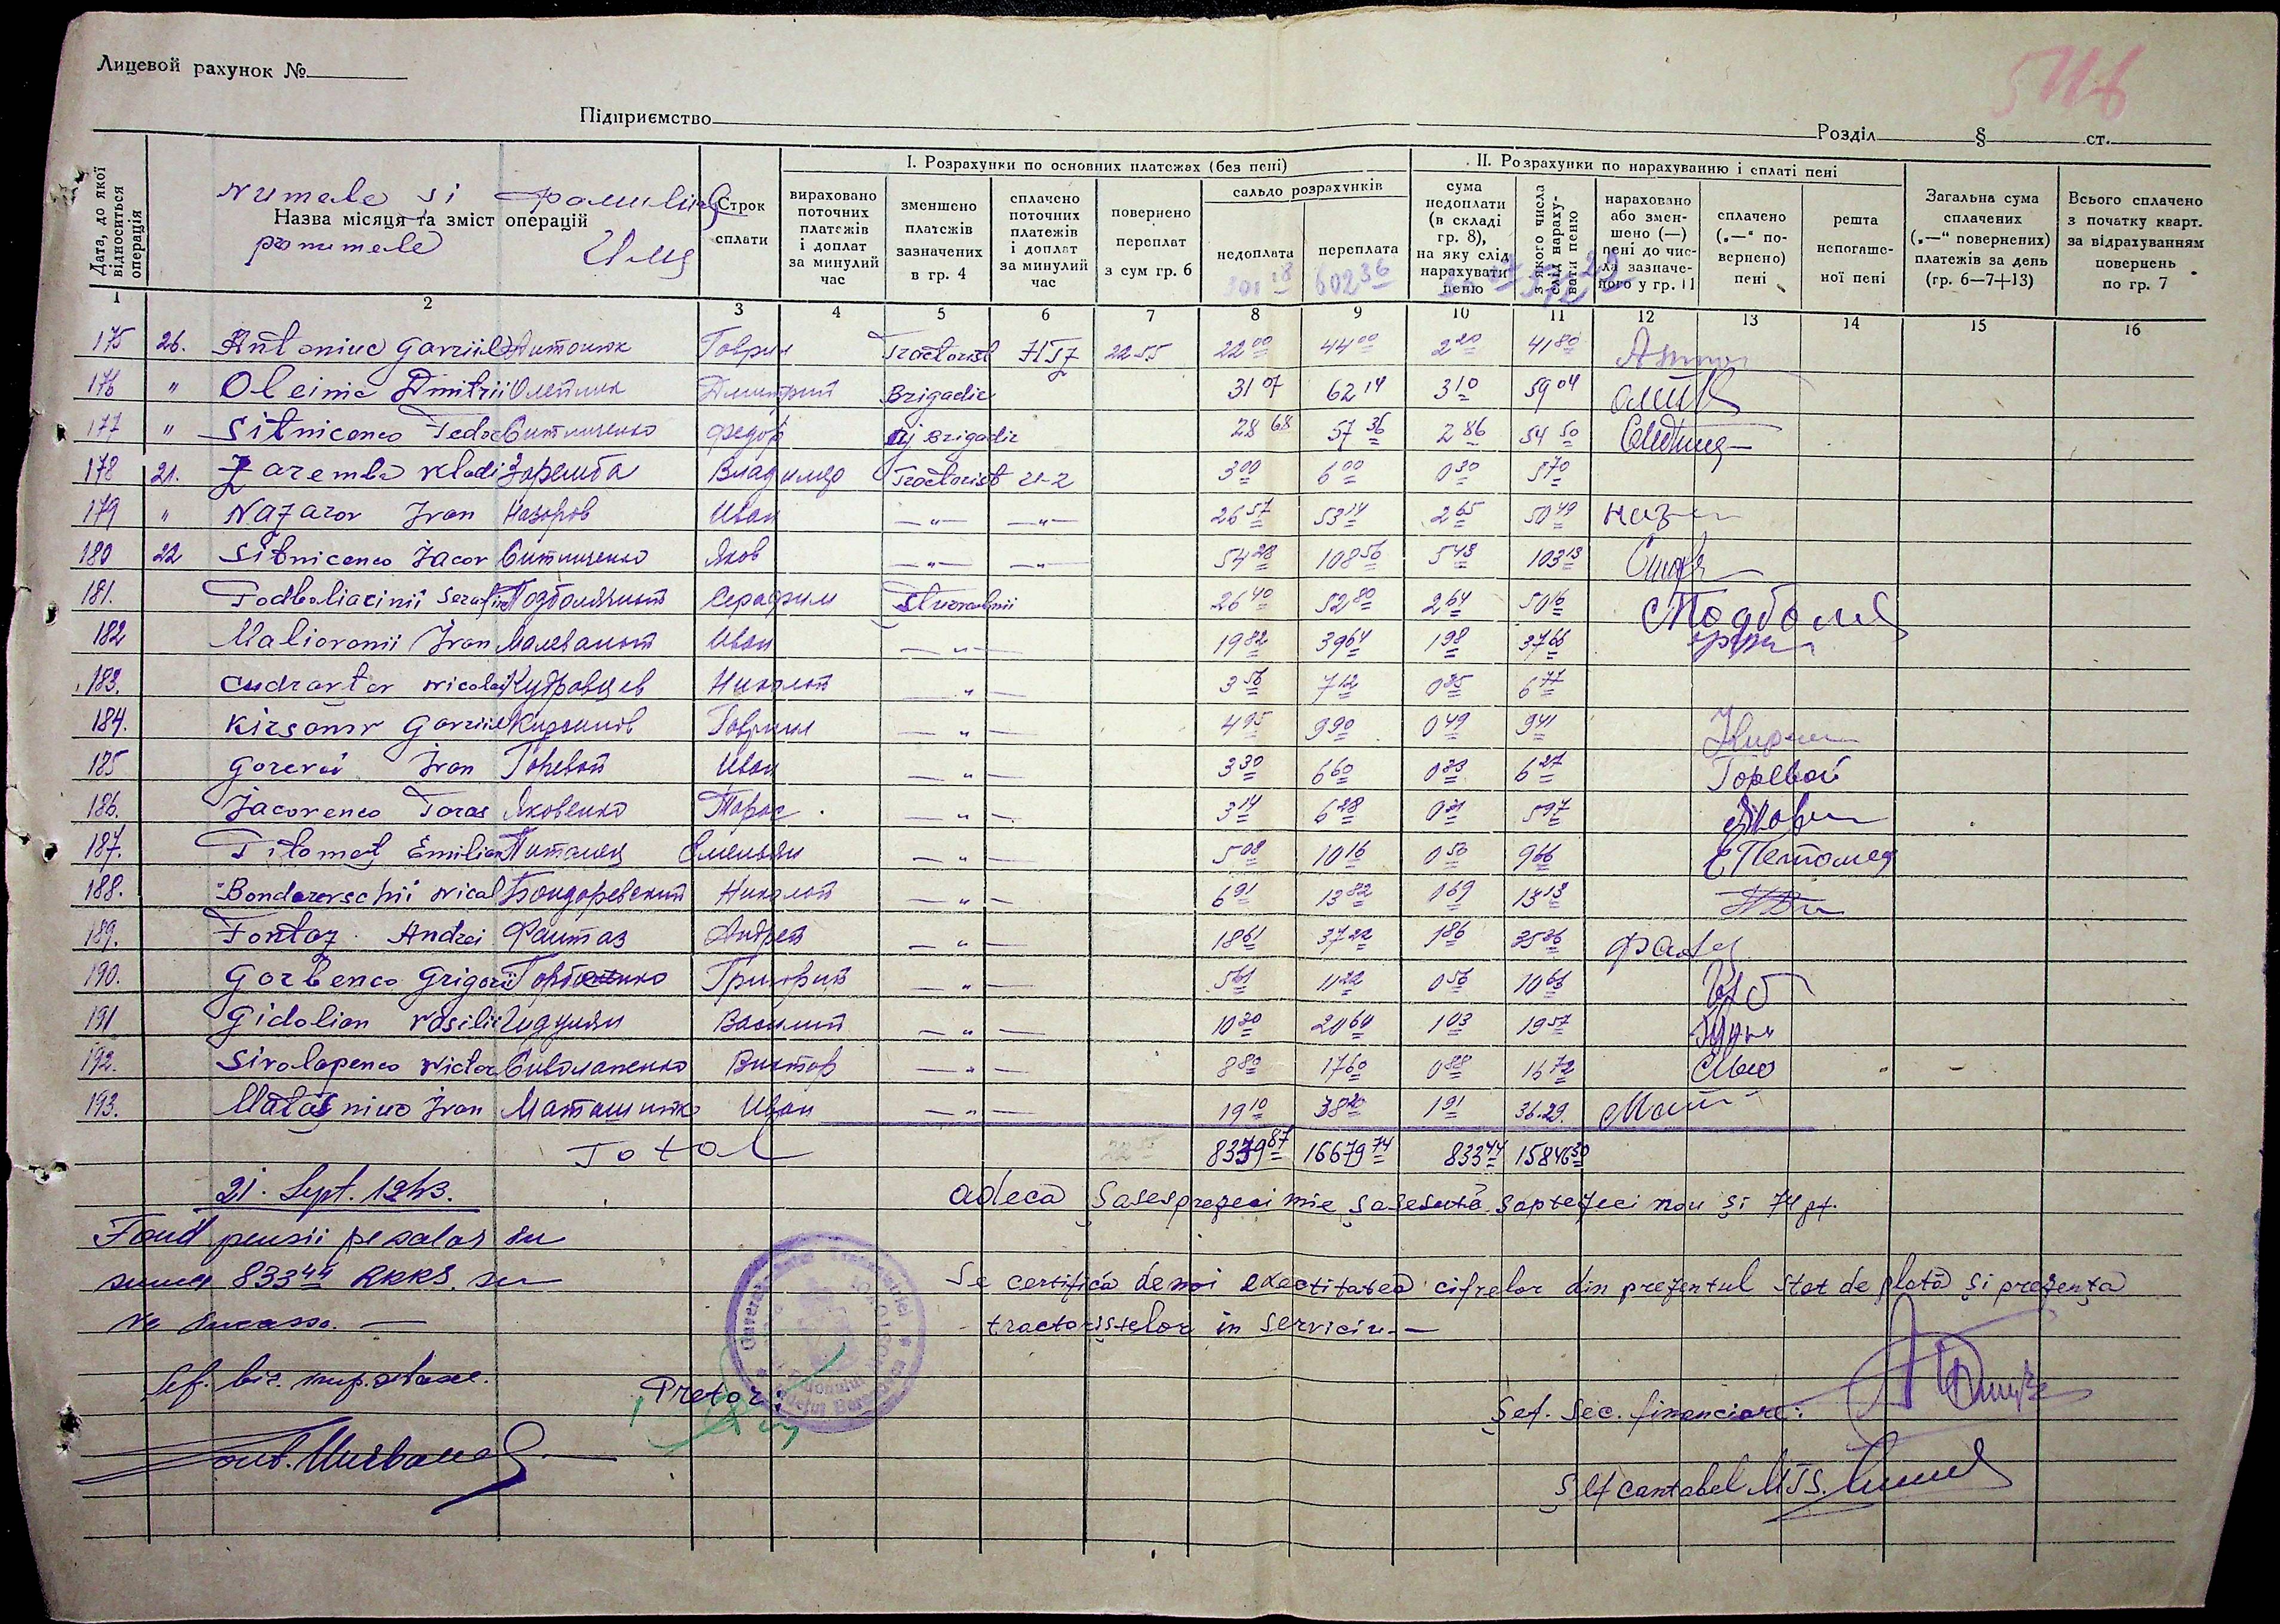 Лицевой рахунок №
Підприємство
Розділ § ст.
Дата, до якої відноситься операція
Numele si Фамилия
Назва місяця та зміст операцій
pronumele Имя
Строк сплати
І. Розрахунки по основних платежах (без пені)
вираховано поточних платежів і доплат за минулий час
зменшено платежів зазначених в гр. 4
сплачено поточних платежів і доплат за минулий час
повернено переплат з сум гр. 6
сальдо розрахунків
недоплата
переплата
602 36
ІІ. Розрахунки по нарахуванню і сплаті пені
сума недоплати (в складі гр. 8), на яку слід нарахувати пеню
з якого числа слід нарахувати пеню
нараховано або зменшено (—) пені до числа зазначеного у гр. 11
сплачено („—“ повернено) пені
решта непогашеної пені
Загальна сума сплачених („—“ повернених) платежів за день (гр. 6—7+13)
Всього сплачено з початку кварт. за відрахуванням повернень по гр. 7
1 2 3 4 5 6 7 8 9 10 11 12 13 14 15 16
175 26. Antoniuc Gavriil Антонюк Гаврил Tractorist 2255 22 00 44 00 2 20 41 80
176 " Oleinic Dmitrii Олейник Дмитрий Brigadir 31 07 62 14 3 10 59 04
177 " Sitnicenco Fedor Ситниченко Федор Aj Brigadir 28 68 57 36 2 86 54 50
178 21. Zaremba Vladi Заремба Владимир Tractorist U-2 3 00 6 00 0 30 5 70
179 " Nazarov Ivan Назаров Иван —"— —"— 26 57 53 14 2 65 50 49
180 22 Sitnicenco Iacov Ситниченко Яков —"— —"— 54 28 108 56 5 43 103 13
181. Podboliacinii Serafim Подболячный Серафим 26 40 52 80 2 64 50 16
182 Maliovanii Ivan Малеваный Иван —"— 19 82 39 64 1 98 37 66
183. Cudravțev Nicolai Кудравцев Николай —"— 3 56 7 12 0 35 6 77
184. Kirsanov Gavriil Кирсанов Гаврил —"— 4 95 9 90 0 49 9 41
185 Gorevoi Ivan Горевой Иван —"— 3 30 6 60 0 33 6 27 Горевой
186. Iacovenco Taras Яковенко Тарас —"— 3 14 6 28 0 31 5 97
187. Pitomeț Emilian Питомец Емельян —"— 5 08 10 16 0 50 9 66
188. Bondarevschii Nicol Бондаревский Николай —"— 6 91 13 82 0 69 13 13
189. Fontaz Andrei Фантаз Андрей —"— 18 61 37 22 1 86 35 36
190. Gorbenco Grigorii Горбенко Григорий —"— 5 61 11 22 0 56 10 66
191 Gidolian Vasilii Василий —"— 10 30 20 60 1 03 19 57
192. Sivolapenco Victor Сиволапенко Виктор —"— 8 80 17 60 0 88 16 72
193. Matașniuc Ivan Маташнюк Иван —"— 19 10 38 20 1 91 36.29
Total 8339 87 16679 74 833 44 15846 30
21. Sept. 1943.
adeca șasesprezeci mie șasesută șaptezeci nou și 74 pf.
Fond pensii pe salar în
suma 833 44 RKKS.
Se certifică de noi exactitatea cifrelor din prezentul stat de plată și prezența
tractoriștelor in serviciu.—
Șef. bir.
Pretor:
Șef. Sec. financiare:
Șef contabel MTS.